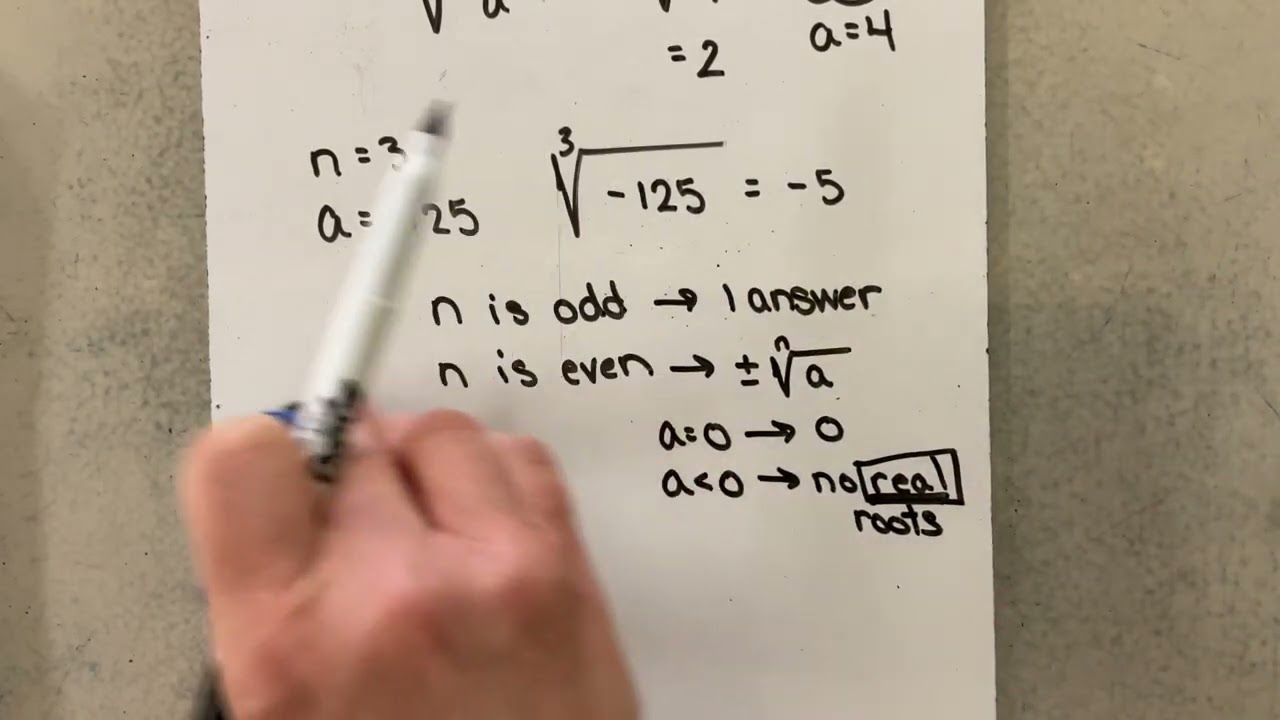 a
= 2
a=4
n = 3
a= 25
3√-125 = -5
n is odd → 1 answer
n is even → ± ⁿ√a
a=0 → 0
a<0 → no real
roots